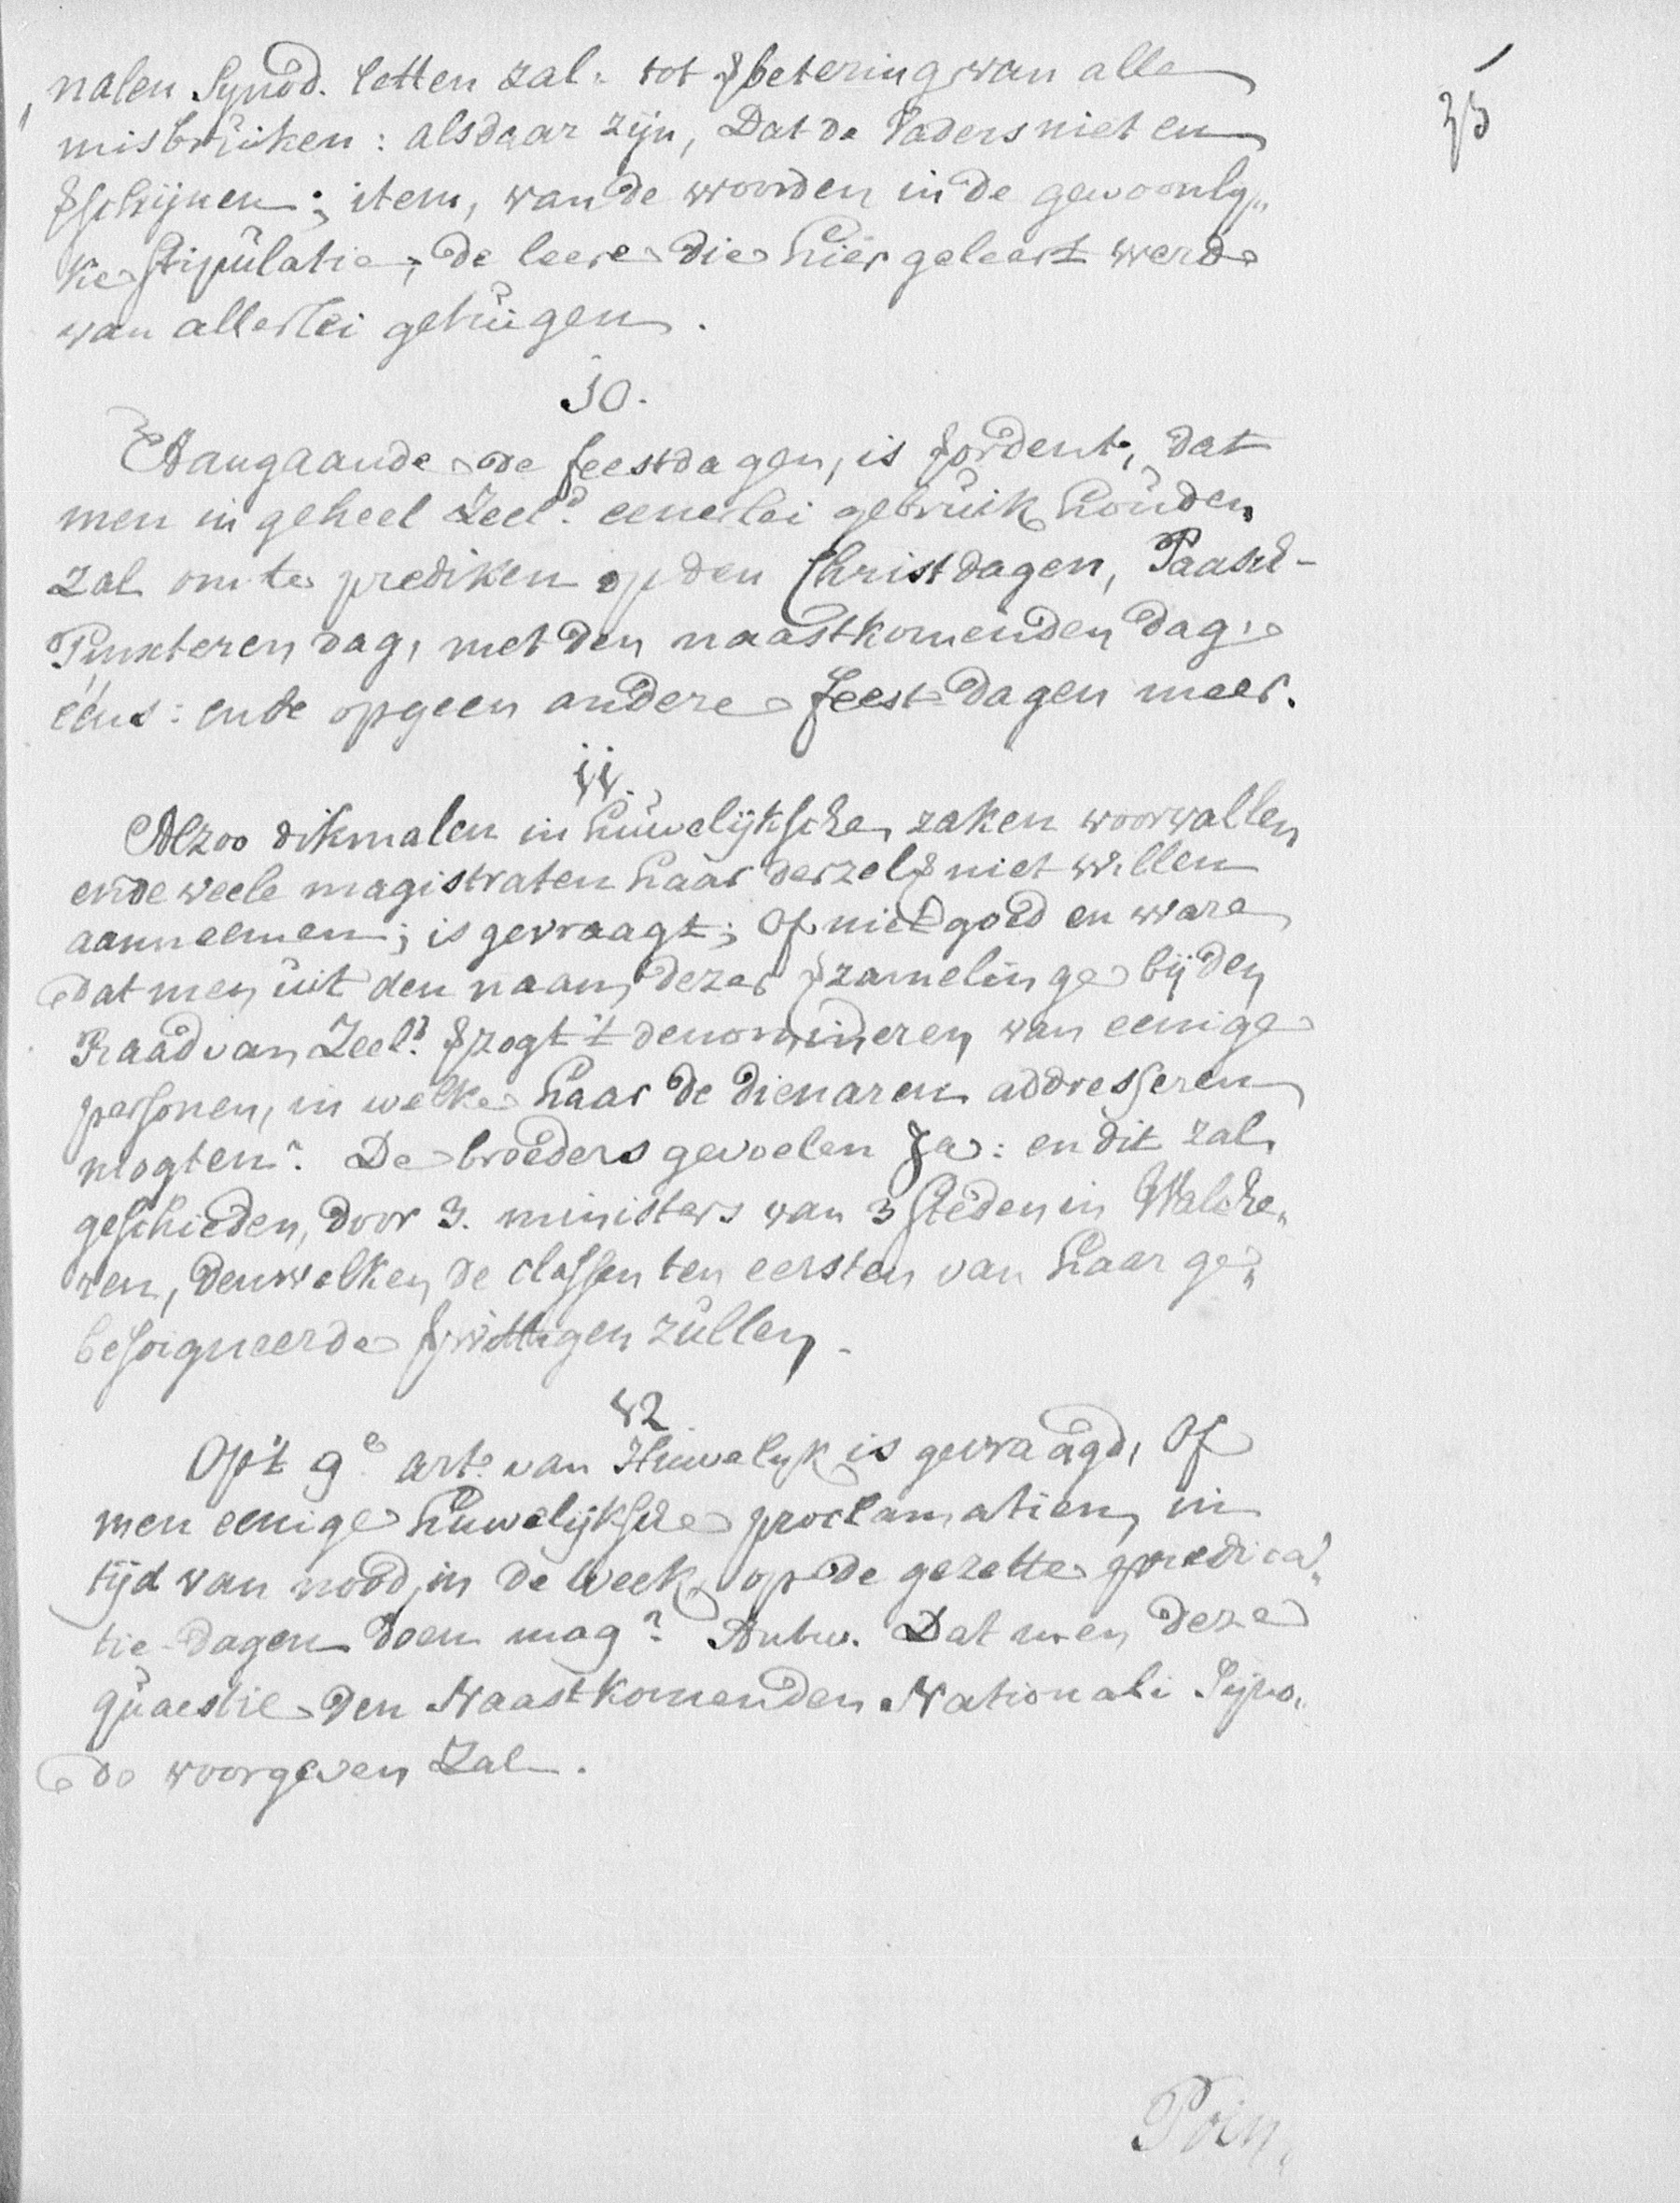 35
nalen Synod. letten zal: tot vbetering van alle
misbruiken: als daar zijn, Dat de Vaders niet en
vschijnen; item, van de woorden in de gewoonly„
ke stipulatie; de leere die hier geleert werde
van allerlei getuigen.
10.
Aangaande de feestdagen, is vordent, dat
men in geheel Zeeld. eenerlei gebruik houden
zal om te prediken op den Christdagen, Paasch-
Pinxteren dag, met den naastkomenden dag,
ééns: ende op geen andere feestdagen meer.
11.
Alzoo dikmalen in huwelijksche zaken voorvallen
ende veele magistraten haar derzelv niet willen
aanneemen; is gevraagt; Of niet goed en ware
dat men uit den naam dezer vzamelinge bij den
Raad van Zeeld. vzogt 't denomineren van eenige
personen, in welke haar de dienaren addresseren
mogten? De broeders gevoelen Ja: en dit zal
geschieden, door 3. ministers van 3 steden in Walche„
ren, denwelken de classen ten eersten van haar ge„
besoigneerde vwittigen zullen.
12
Op 't 9e art. van Huwelyk is gevraagd, Of
men eenige huwelijksche proclamatien, in
tijd van nood, in de week, op de gezette predica„
tie-dagen doen mag? Antw. Dat men deze
quaestie den Naastkomenden Nationali Syno„
do voorgeven zal.